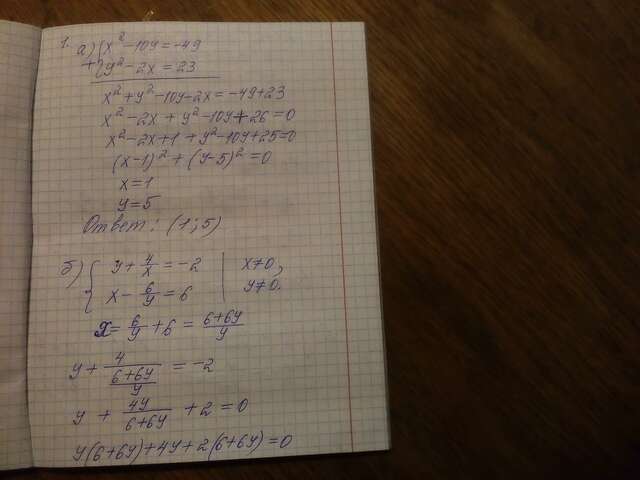 1. а) { x² - 10y = -49
+ { y² - 2x = 23
x² + y² - 10y - 2x = -49 + 23
x² - 2x + y² - 10y + 26 = 0
x² - 2x + 1 + y² - 10y + 25 = 0
(x-1)² + (y-5)² = 0
x = 1
y = 5
Ответ: (1; 5)
б) { y + 4/x = -2 | x ≠ 0,
{ x - 6/y = 6 | y ≠ 0.
x = 6/y + 6 = (6+6y)/y
y + 4/((6+6y)/y) = -2
y + 4y/(6+6y) + 2 = 0
y(6+6y) + 4y + 2(6+6y) = 0